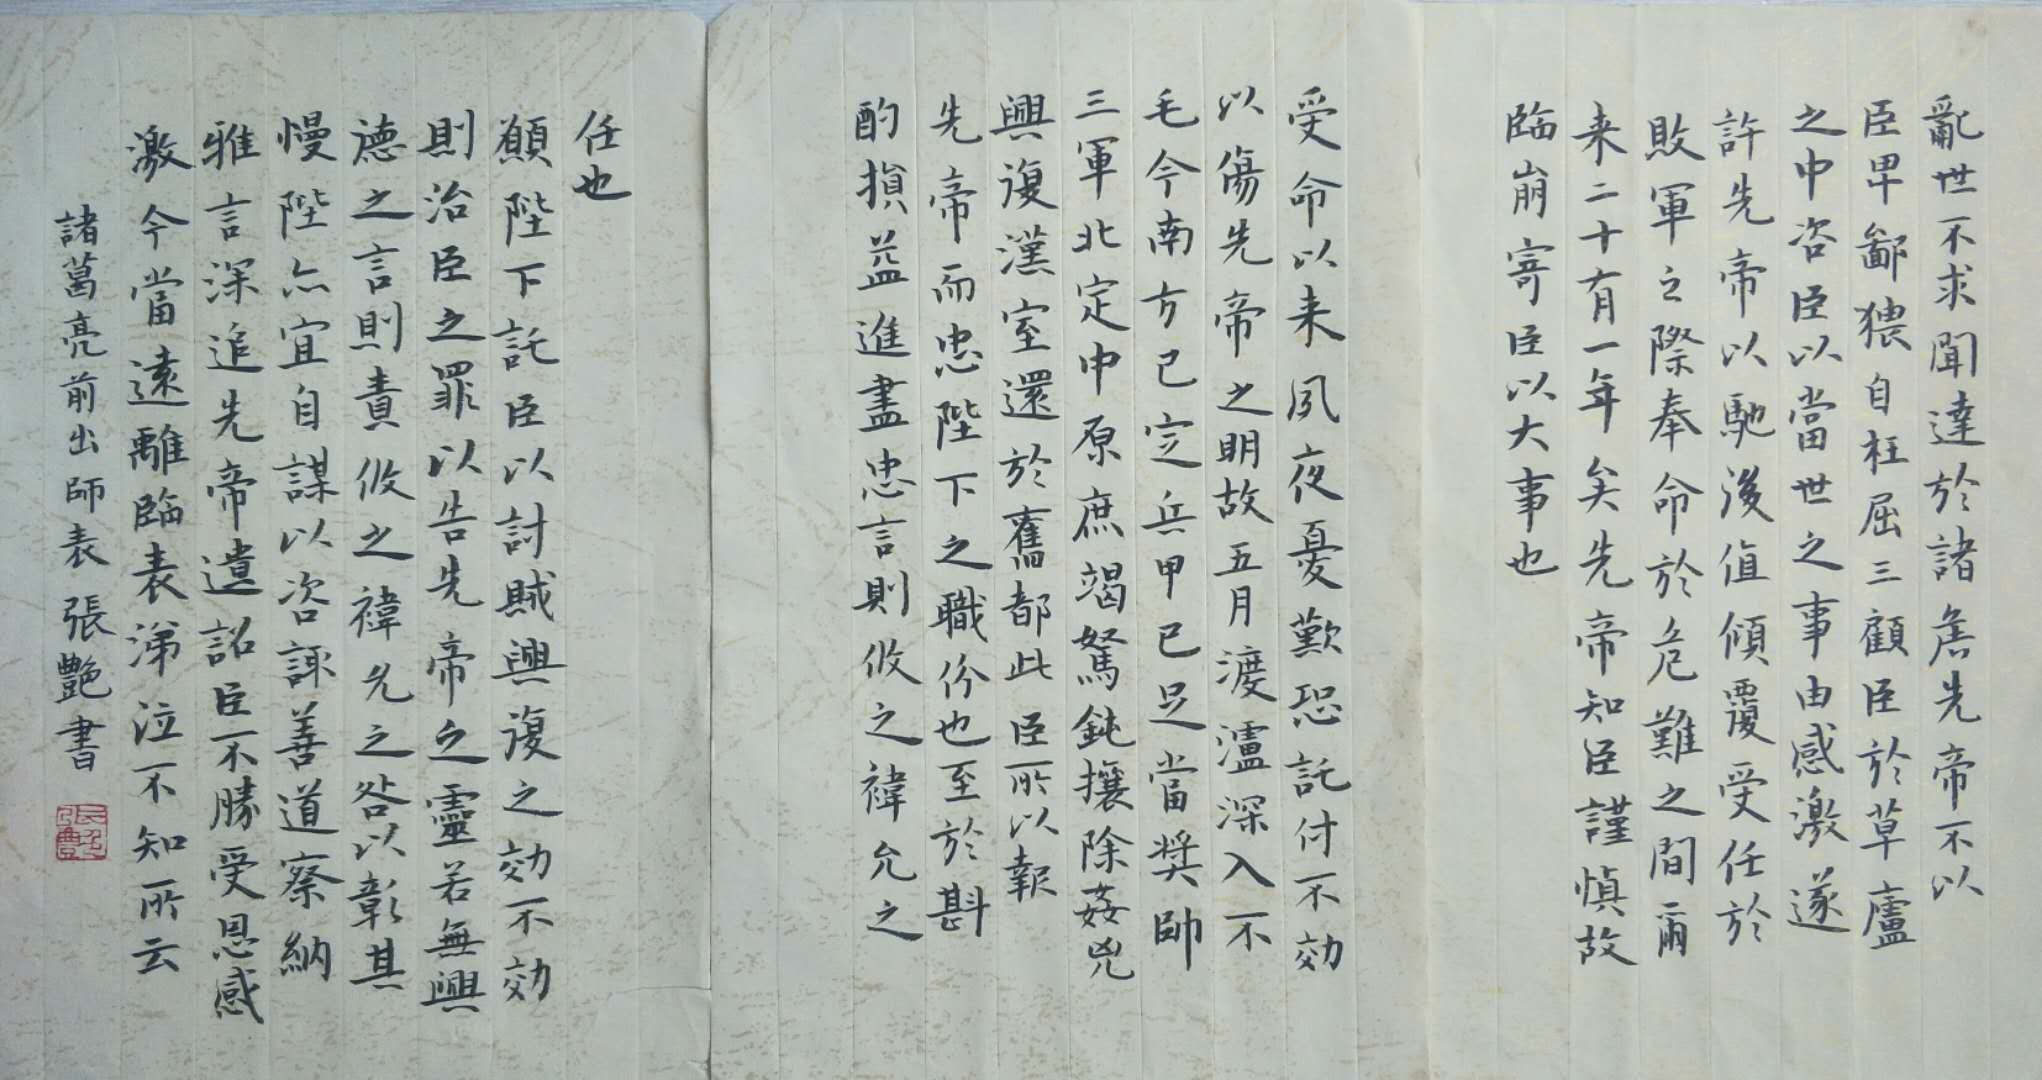 亂世不求聞達於諸矦先帝不以
臣卑鄙猥自枉屈三顧臣於草廬
之中咨臣以當世之事由感激遂
許先帝以馳後值傾覆受任於
敗軍之際奉命於危難之間爾
来二十有一年矣先帝知臣謹慎故
臨崩寄臣以大事也
受命以来夙夜憂歎恐託付不効
以傷先帝之明故五月渡瀘深入不
毛今南方已定兵甲已足當奬帥
三軍北定中原庶竭駑鈍攘除姦兇
興復漢室還於舊都此臣所以報
先帝而忠陛下之職份也至於斟
酌損益進盡忠言則攸之褘允之
任也
願陛下託臣以討賊興復之効不効
則治臣之罪以告先帝之靈若無興
德之言則責攸之褘允之咎以彰其
慢陛亦宜自謀以咨諏善道察納
雅言深追先帝遺詔臣不勝受恩感
激今當遠離臨表涕泣不知所云
諸葛亮前出師表 張艷書